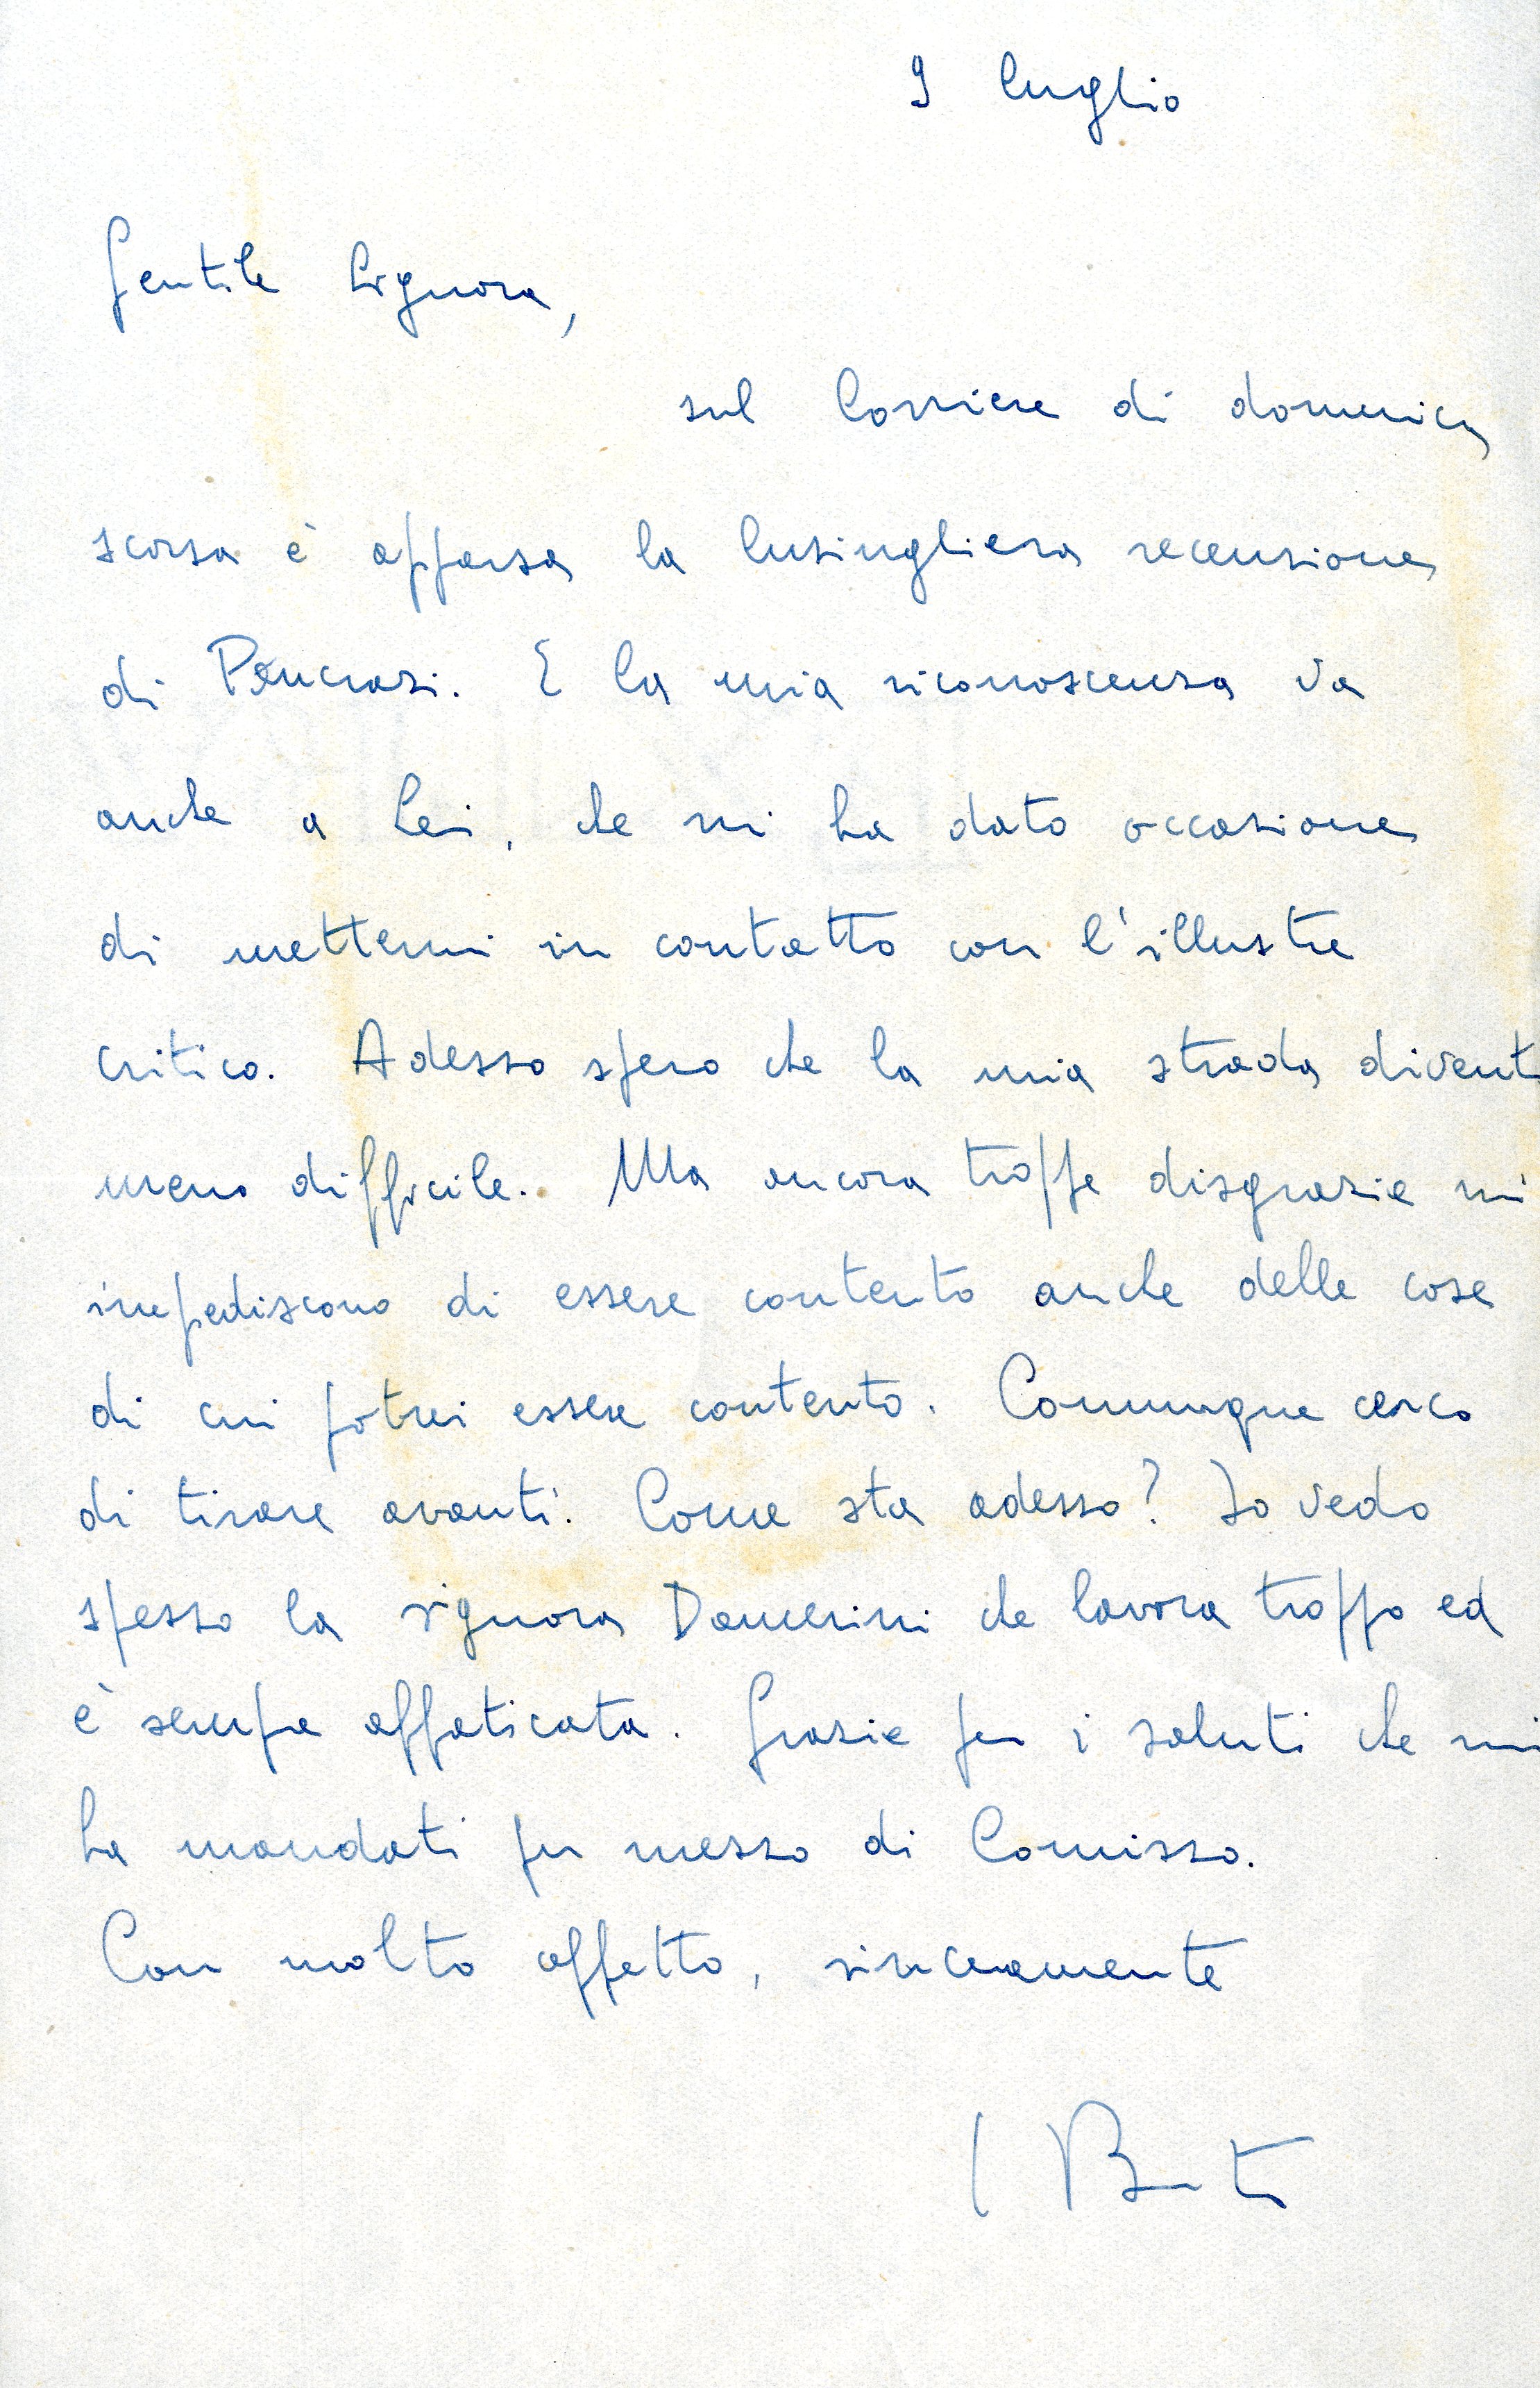 9 luglio
Gentile Signora,
sul Corriere di domenica
scorsa è apparsa la lusinghiera recensione
di Pancrazi. E la mia riconoscenza va
anche a Lei, che mi ha dato occasione
di mettermi in contatto con l'illustre
critico. Adesso spero che la mia strada divent
meno difficile. Ma ancora troppe disgrazie mi
impediscono di essere contento anche delle cose
di cui potrei essere contento. Comunque cerco
di tirare avanti. Come sta adesso? Io vedo
spesso la signora Damerini che lavora troppo ed
è sempre affaticata. Grazie per i saluti che mi
ha mandati per mezzo di Comisso.
Con molto affetto, sinceramente